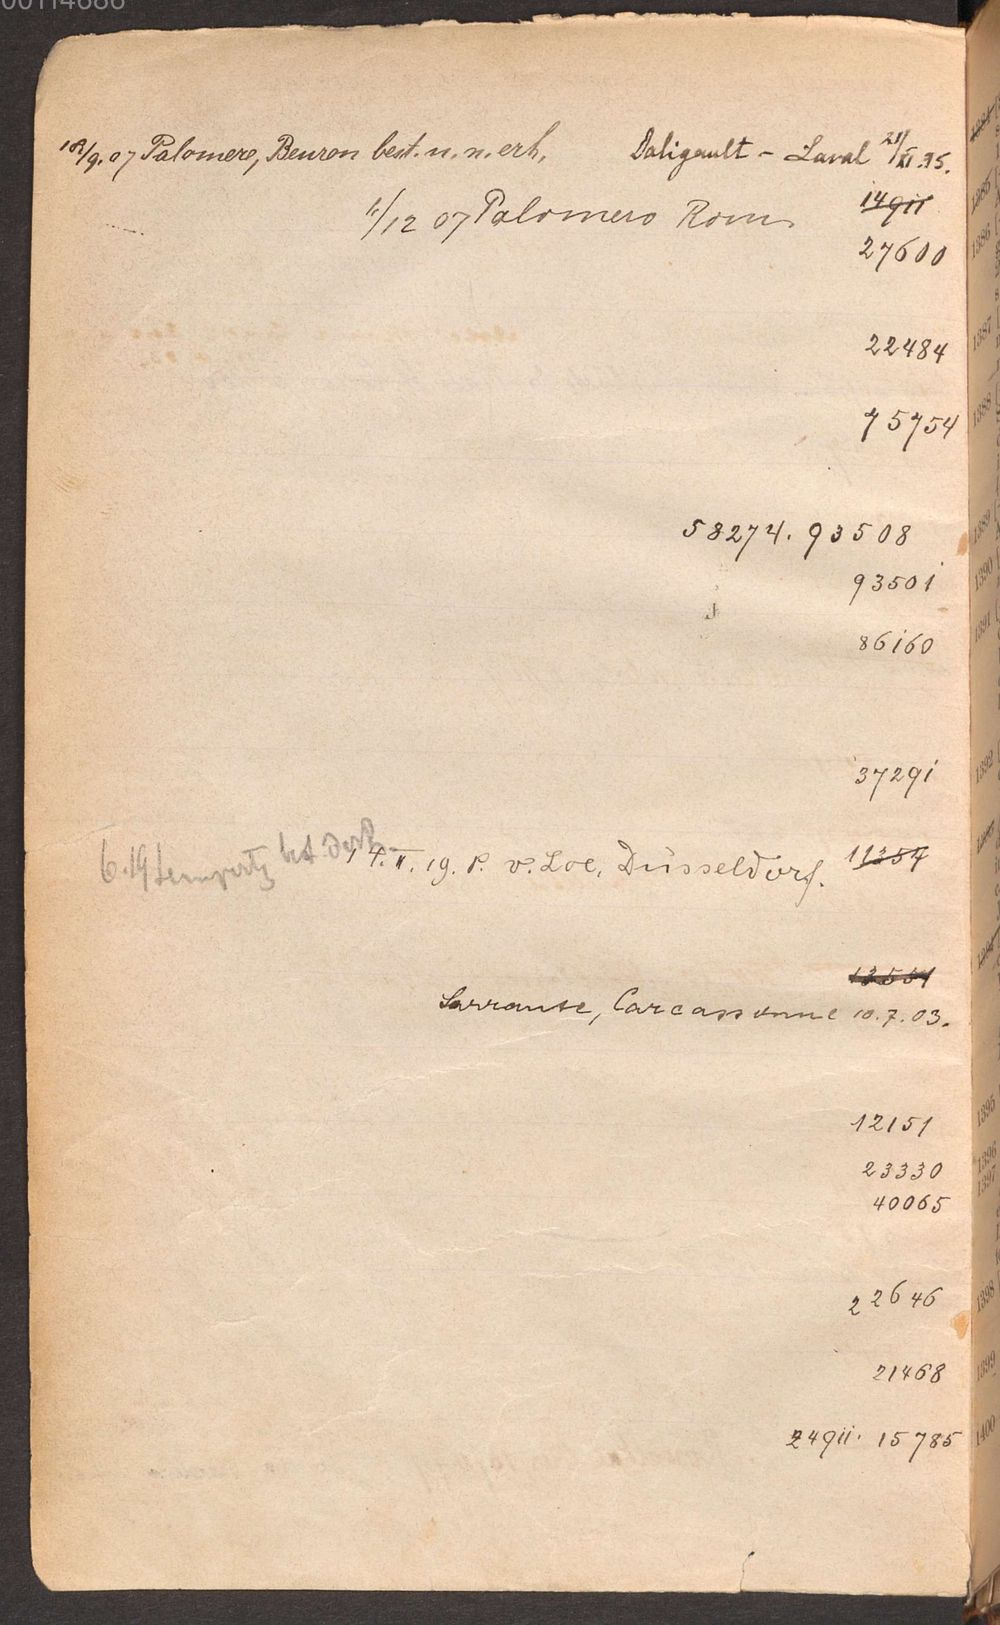 00114686
18/9.07 Palomero, Beuron best. u. n. erh. Daligault - Laval 21/XI 35.
14911
11/12 07 Palomero Rom
27600
22484
75754
58274. 93508
93501
86160
37291
6.19 Lempertz
14.II.19. P. v. Loe, Düsseldorf. 11354
13551
Sarraute, Carcassonne 10.7.03.
12151
23330
40065
22646
21468
24911. 15785
1385
1386
1387
1388
1389
1390
1391
1392
1395
1396
1397
1398
1399
1400